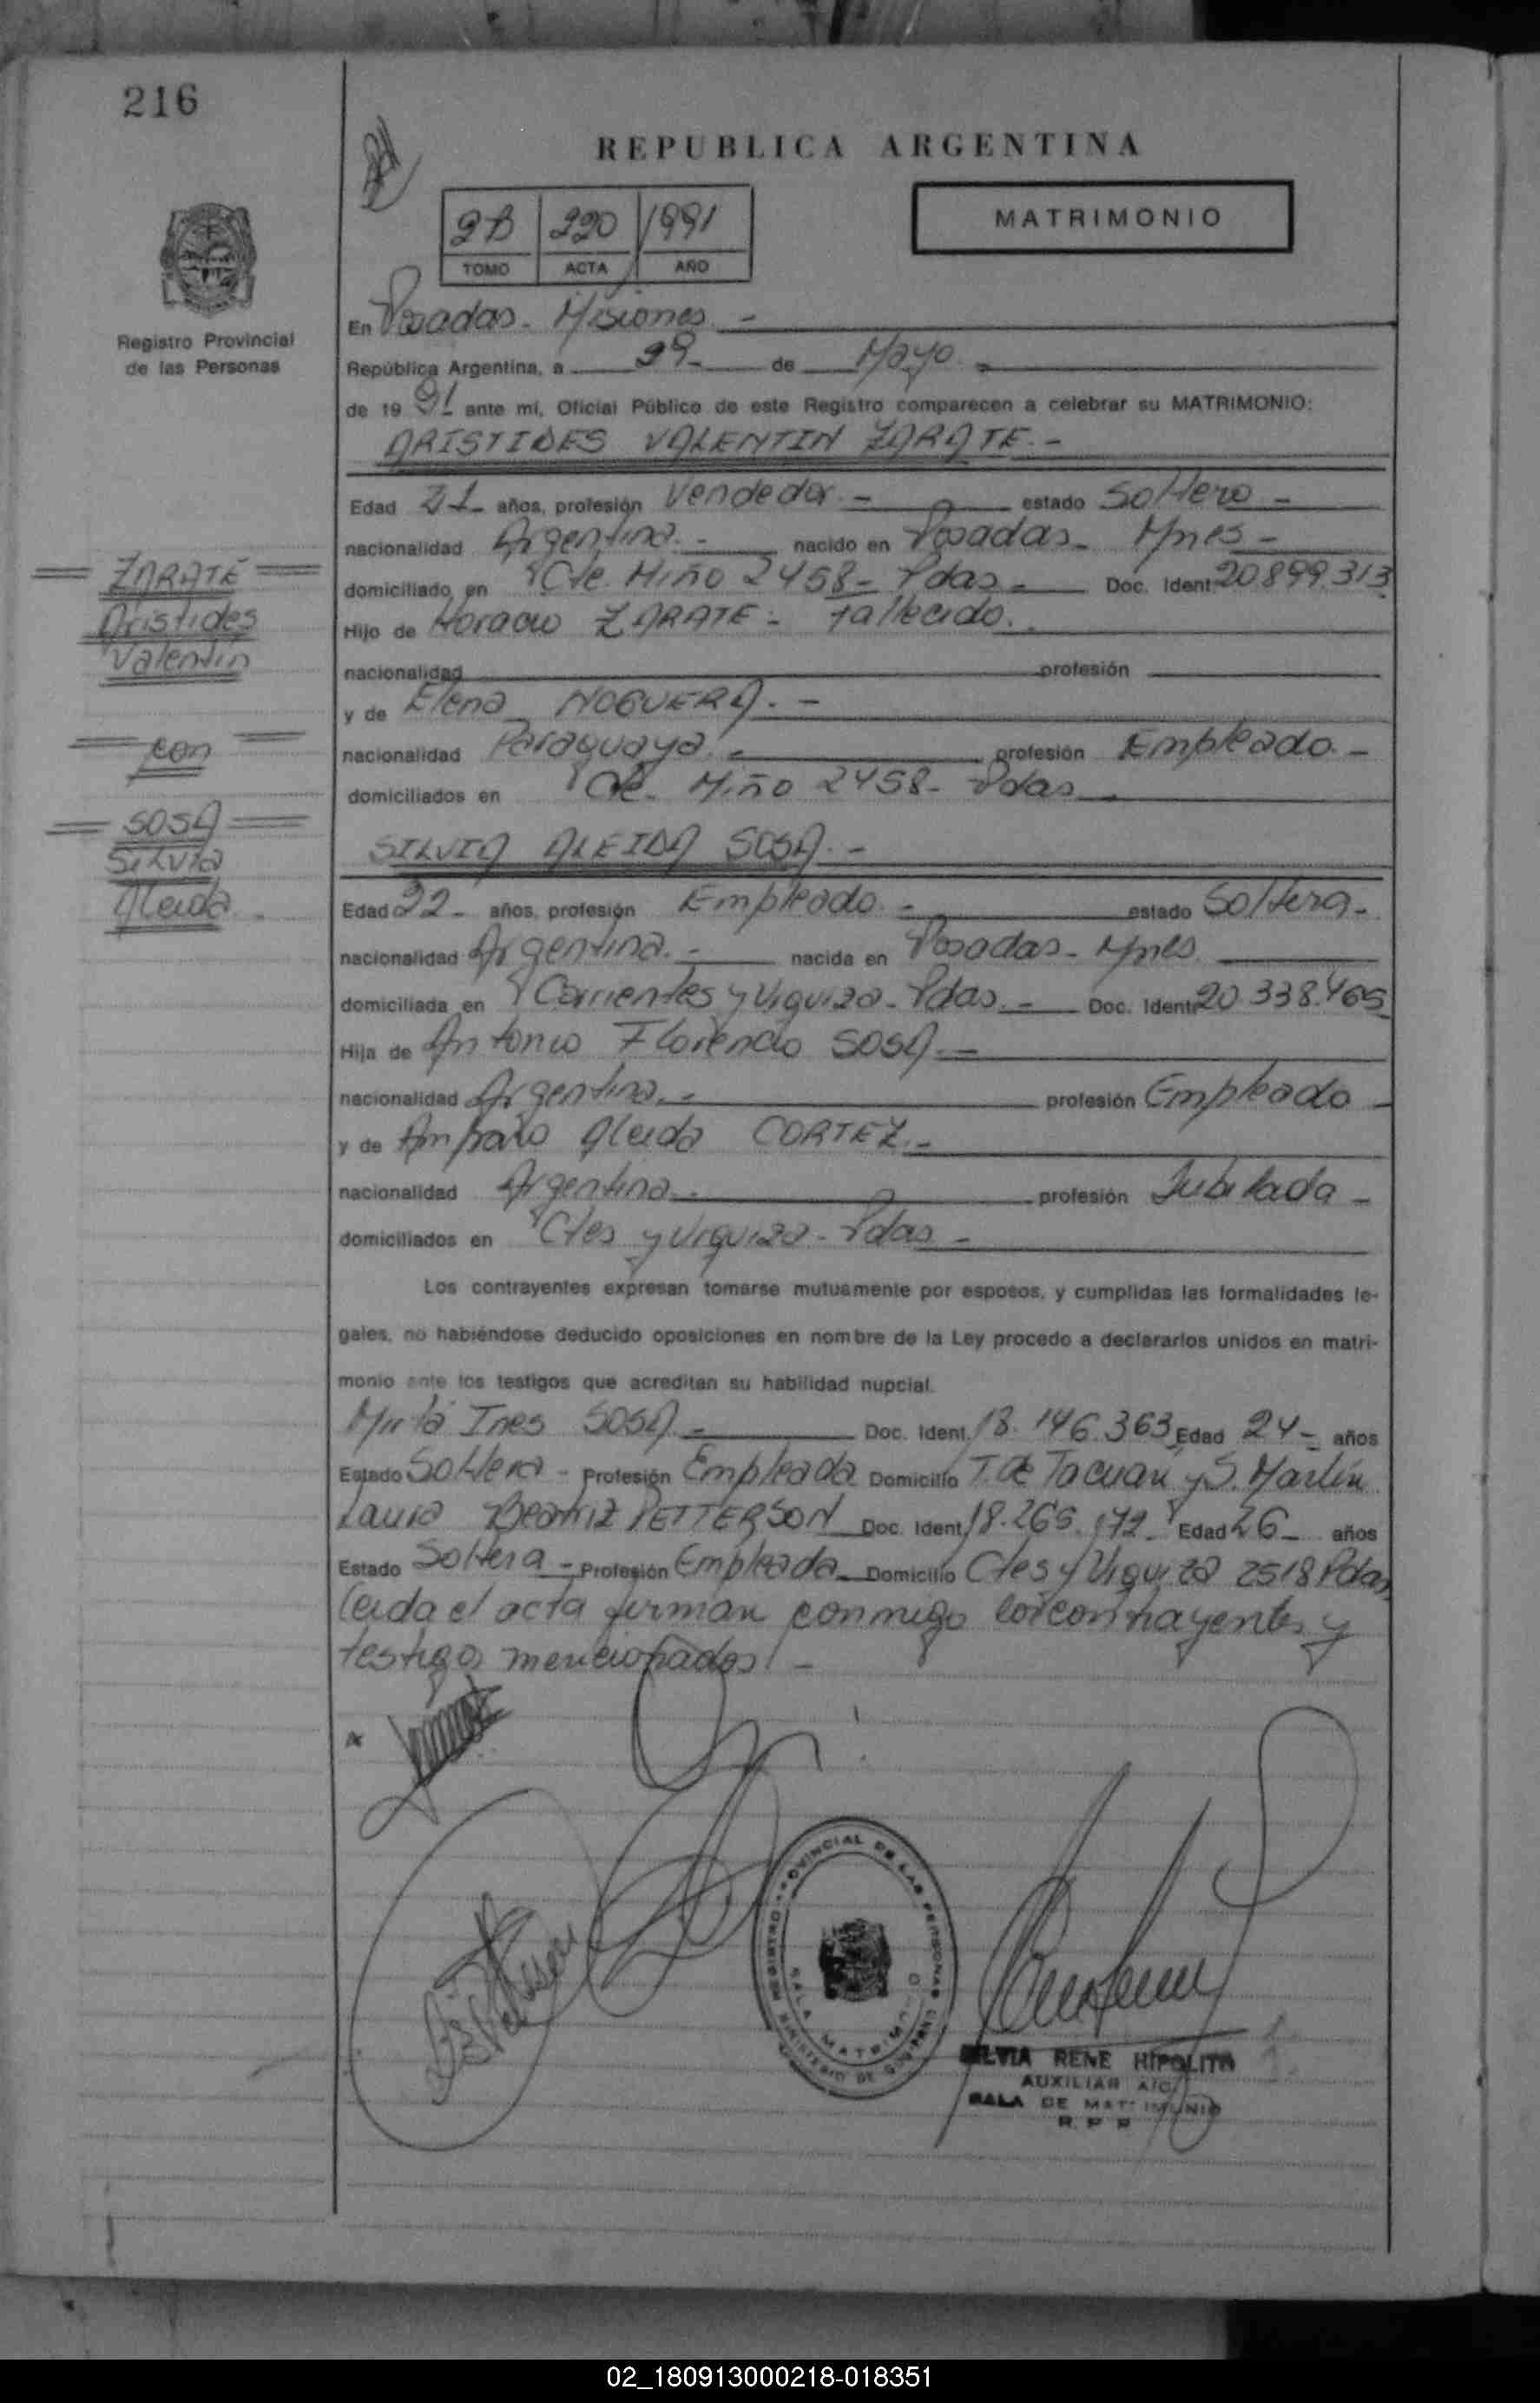 216
REPUBLICA ARGENTINA
MATRIMONIO
2B 220 1991
TOMO ACTA AÑO
Registro Provincial
de las Personas
En Posadas - Misiones. -
República Argentina, a 29 - de Mayo -
de 19 91 ante mí, Oficial Público de este Registro comparecen a celebrar su MATRIMONIO:
ARISTIDES VALENTIN ZARATE. -
Edad 21 - años, profesión Vendedor. - estado Soltero -
nacionalidad Argentina. - nacido en Posadas - Mnes -
domiciliado en Cte. Miño 2458 - Pdas - Doc. Ident. 20.899.313
Hijo de Horacio ZARATE - fallecido.
nacionalidad profesión
y de Elena NOGUERA. -
nacionalidad Paraguaya. - profesión Empleado. -
domiciliados en Cte. Miño 2458 - Pdas
ZARATE
Aristides
Valentín
con
SOSA
Silvia
Aleida
SILVIA ALEIDA SOSA. -
Edad 22 - años, profesión Empleado. - estado Soltera -
nacionalidad Argentina. - nacida en Posadas - Mnes.
domiciliada en Corrientes y Urquiza - Pdas. - Doc. Ident. 20.338.465
Hija de Antonio Florencio SOSA. -
nacionalidad Argentina. - profesión Empleado -
y de Amparo Aleida CORTEZ. -
nacionalidad Argentina - profesión Jubilada -
domiciliados en Ctes y Urquiza - Pdas -
Los contrayentes expresan tomarse mutuamente por esposos, y cumplidas las formalidades le-
gales, no habiéndose deducido oposiciones en nombre de la Ley procedo a declararlos unidos en matri-
monio ante los testigos que acreditan su habilidad nupcial.
Mirta Ines SOSA. - Doc. Ident. 18.146.363 Edad 24 - años
Estado Soltera - Profesión Empleada Domicilio T. de Tacuarí y S. Martín
Laura Beatriz PETTERSON Doc. Ident. 18.265.172 - Edad 26 - años
Estado Soltera - Profesión Empleada Domicilio Ctes y Urquiza 2518 Pdas
leida el acta firman conmigo los contrayentes y
testigos mencionados. -
REGISTRO PROVINCIAL DE LAS PERSONAS
MINISTERIO DE GOBIERNO
SALA MATRIMONIO
SILVIA RENE HIPOLITO
AUXILIAR A/C
SALA DE MATRIMONIO
R. P. P.
02_180913000218-018351